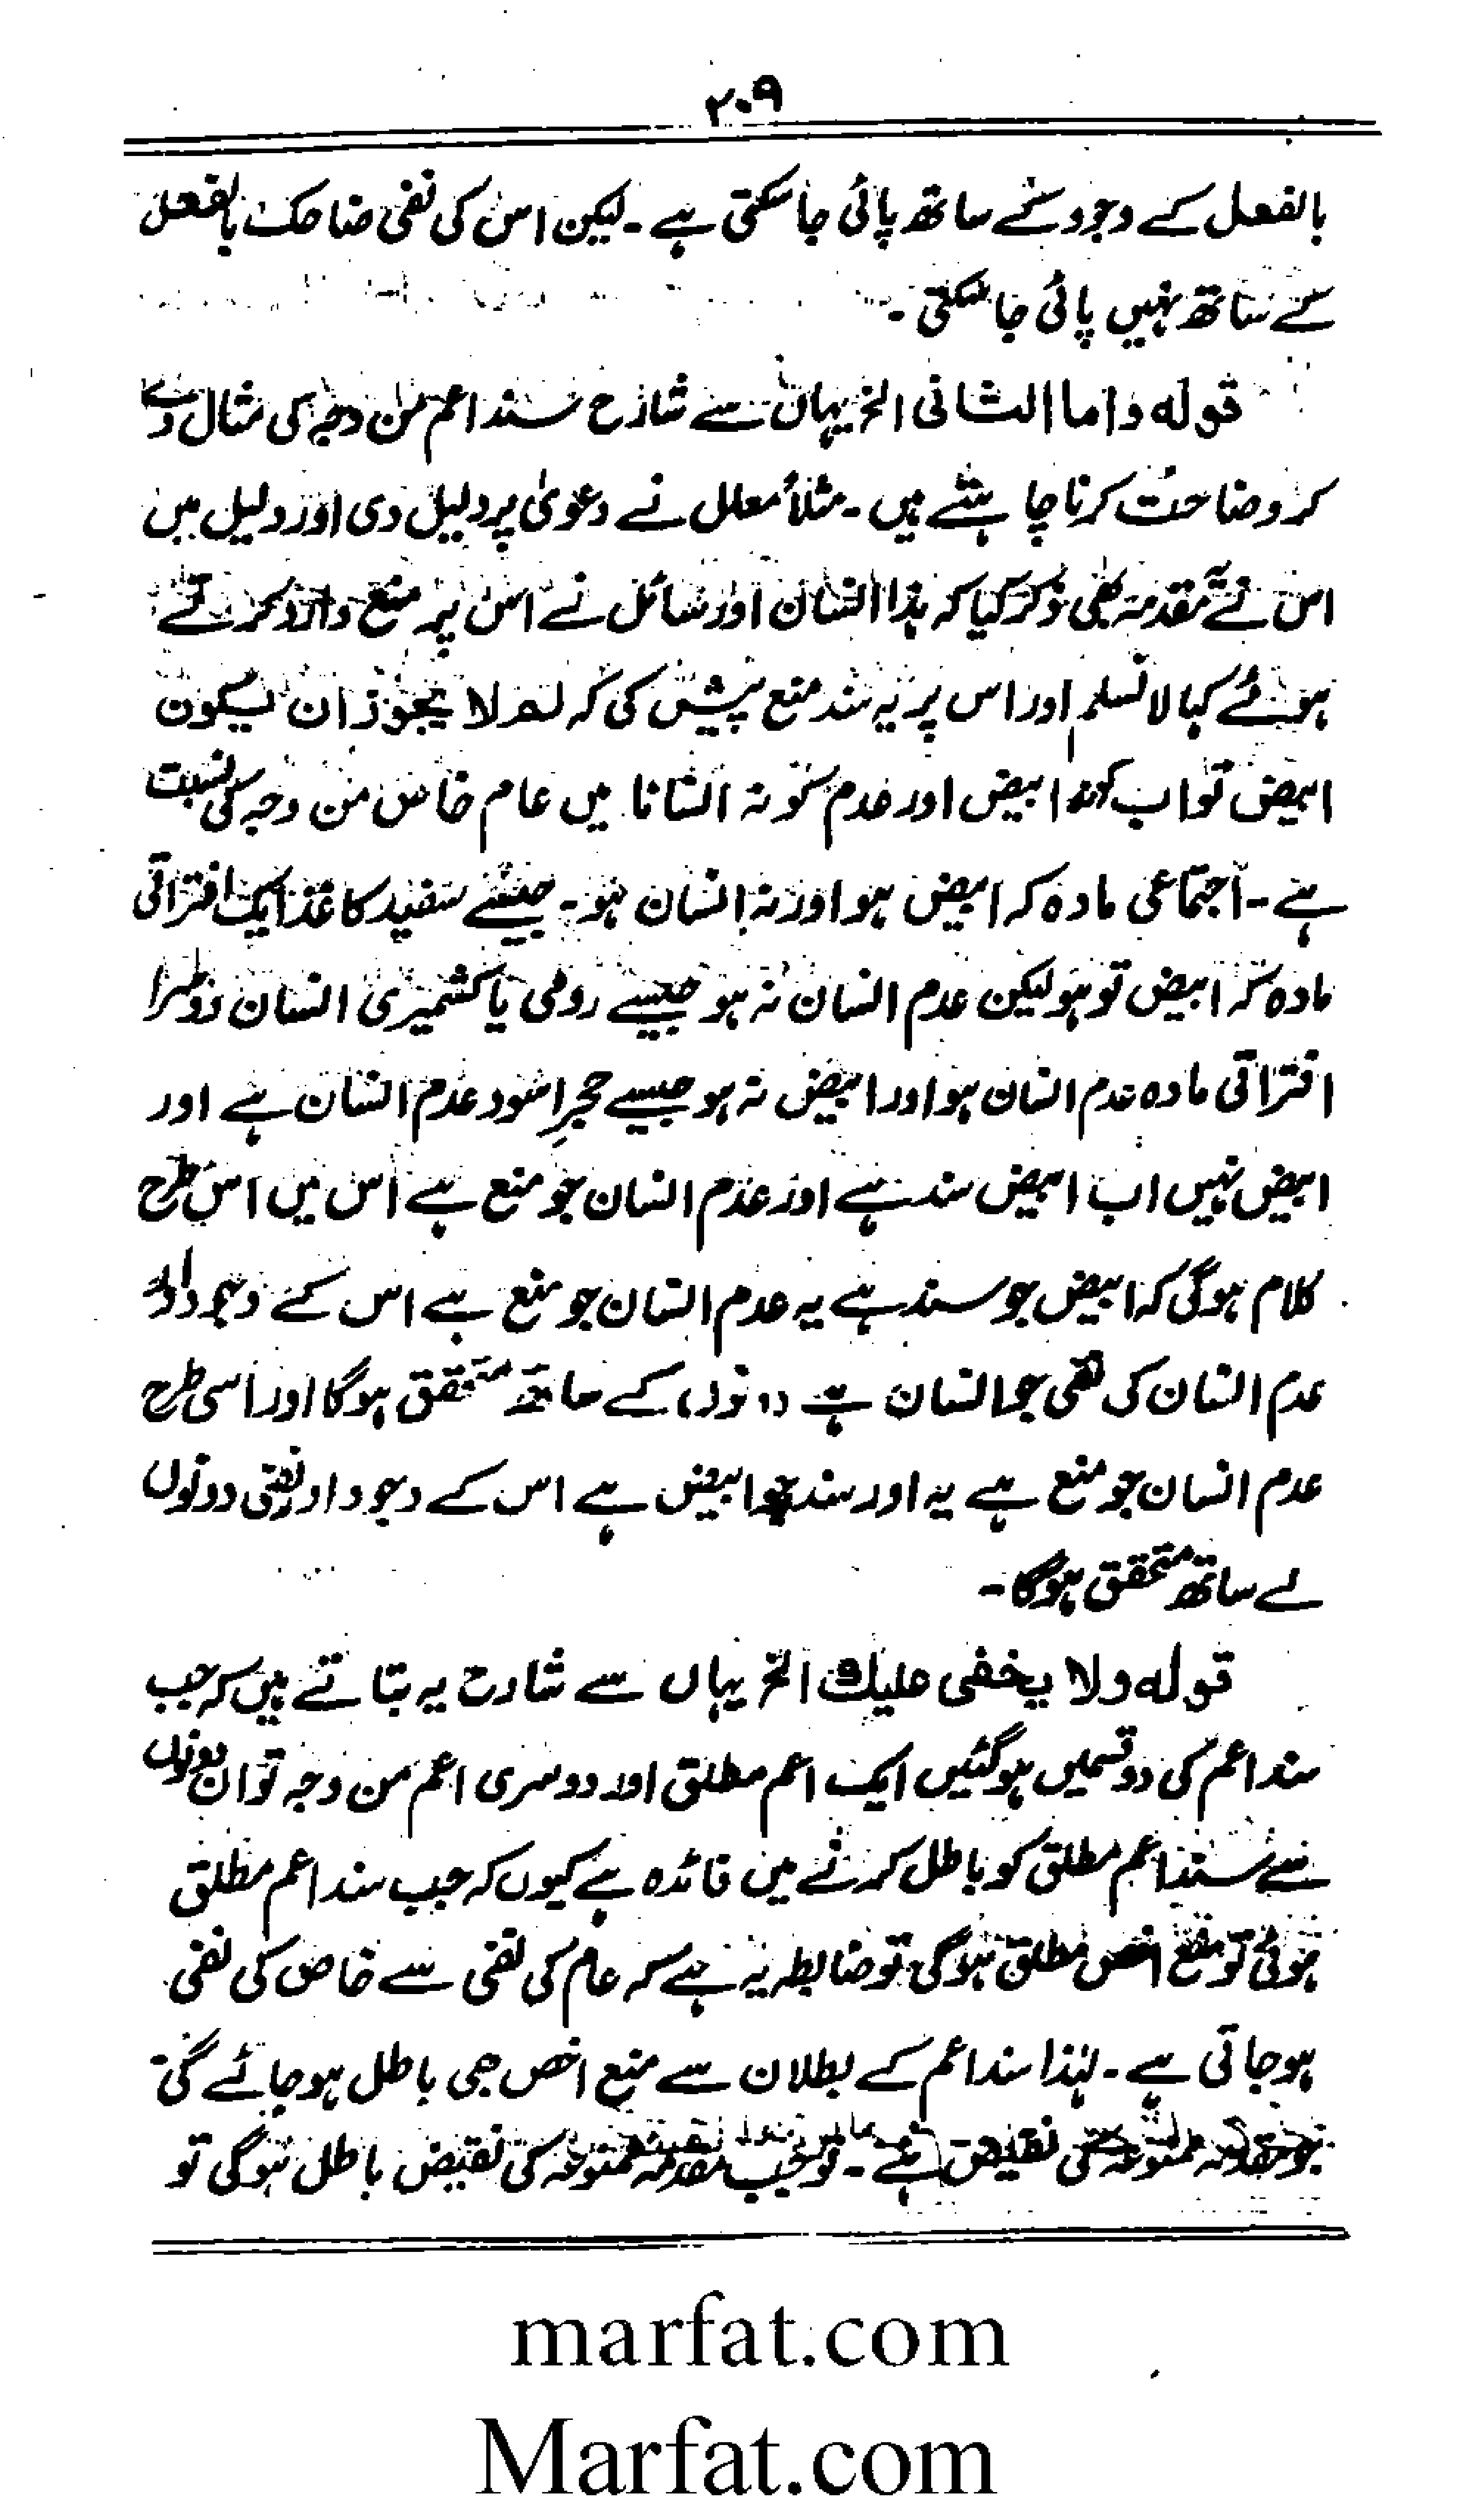 ۲۰۹
بالفعل کے وجود کے ساتھ پائی جا سکتی ہے۔ لیکن اس کی نفی ضاحک بالفعل
کے ساتھ نہیں پائی جا سکتی۔
قولہ واما الثانی الخ یہاں سے شارح سند اعم من وجہ کی مثال دے
کر وضاحت کرنا چاہتے ہیں۔ مثلاً معلل نے دعویٰ پر دلیل دی اور دلیل میں
اس نے مقدمہ بھی ذکر کیا کہ ہذا انسان اور سائل نے اس پر منع وارد کرتے
ہوئے کہا لا نسلم اور اس پر یہ سند منع پیش کی کہ لم لا یجوز ان یکون
ابیض تو اب ابیض اور عدم کونہ انسانا میں عام خاص من وجہ کی نسبت
ہے۔ اجتماعی مادہ کہ ابیض ہو اور نہ انسان ہو۔ جیسے سفید کاغذ ایک افتراقی
مادہ کہ ابیض تو ہو لیکن عدم انسان نہ ہو جیسے رومی یا کشمیری انسان دوسرا
افتراقی مادہ عدم انسان ہو اور ابیض نہ ہو جیسے حجرِ اسود عدم انسان ہے اور
ابیض نہیں اب ابیض سند ہے اور عدم انسان جو منع ہے اس میں اس طرح
کلام ہوگی کہ ابیض جو سند ہے یہ عدم انسان جو منع ہے اس کے وجود اور
عدم انسان کی نفی جو انسان ہے دونوں کے ساتھ متحقق ہوگا اور اسی طرح
عدم انسان جو منع ہے یہ اور سند جو ابیض ہے اس کے وجود اور نفی دونوں
کے ساتھ متحقق ہوگا۔
قولہ ولا یخفی علیک الخ یہاں سے شارح یہ بتاتے ہیں کہ جب
سند اعم کی دو قسمیں ہوگئیں ایک اعم مطلق اور دوسری اعم من وجہ تو ان دونوں
سے سند اعم مطلق کو باطل کرنے میں فائدہ ہے کیوں کہ جب سند اعم مطلق
ہوئی تو منع اخص مطلق ہوگی تو ضابطہ یہ ہے کہ عام کی نفی سے خاص کی نفی
ہوجاتی ہے۔ لہذا سند اعم کے بطلان سے منع اخص بھی باطل ہوجائے گی۔
جو مقدمہ ممنوعہ کی نقیض ہے۔ تو جب مقدمہ ممنوعہ کی نقیض باطل ہوگی تو
marfat.com
Marfat.com